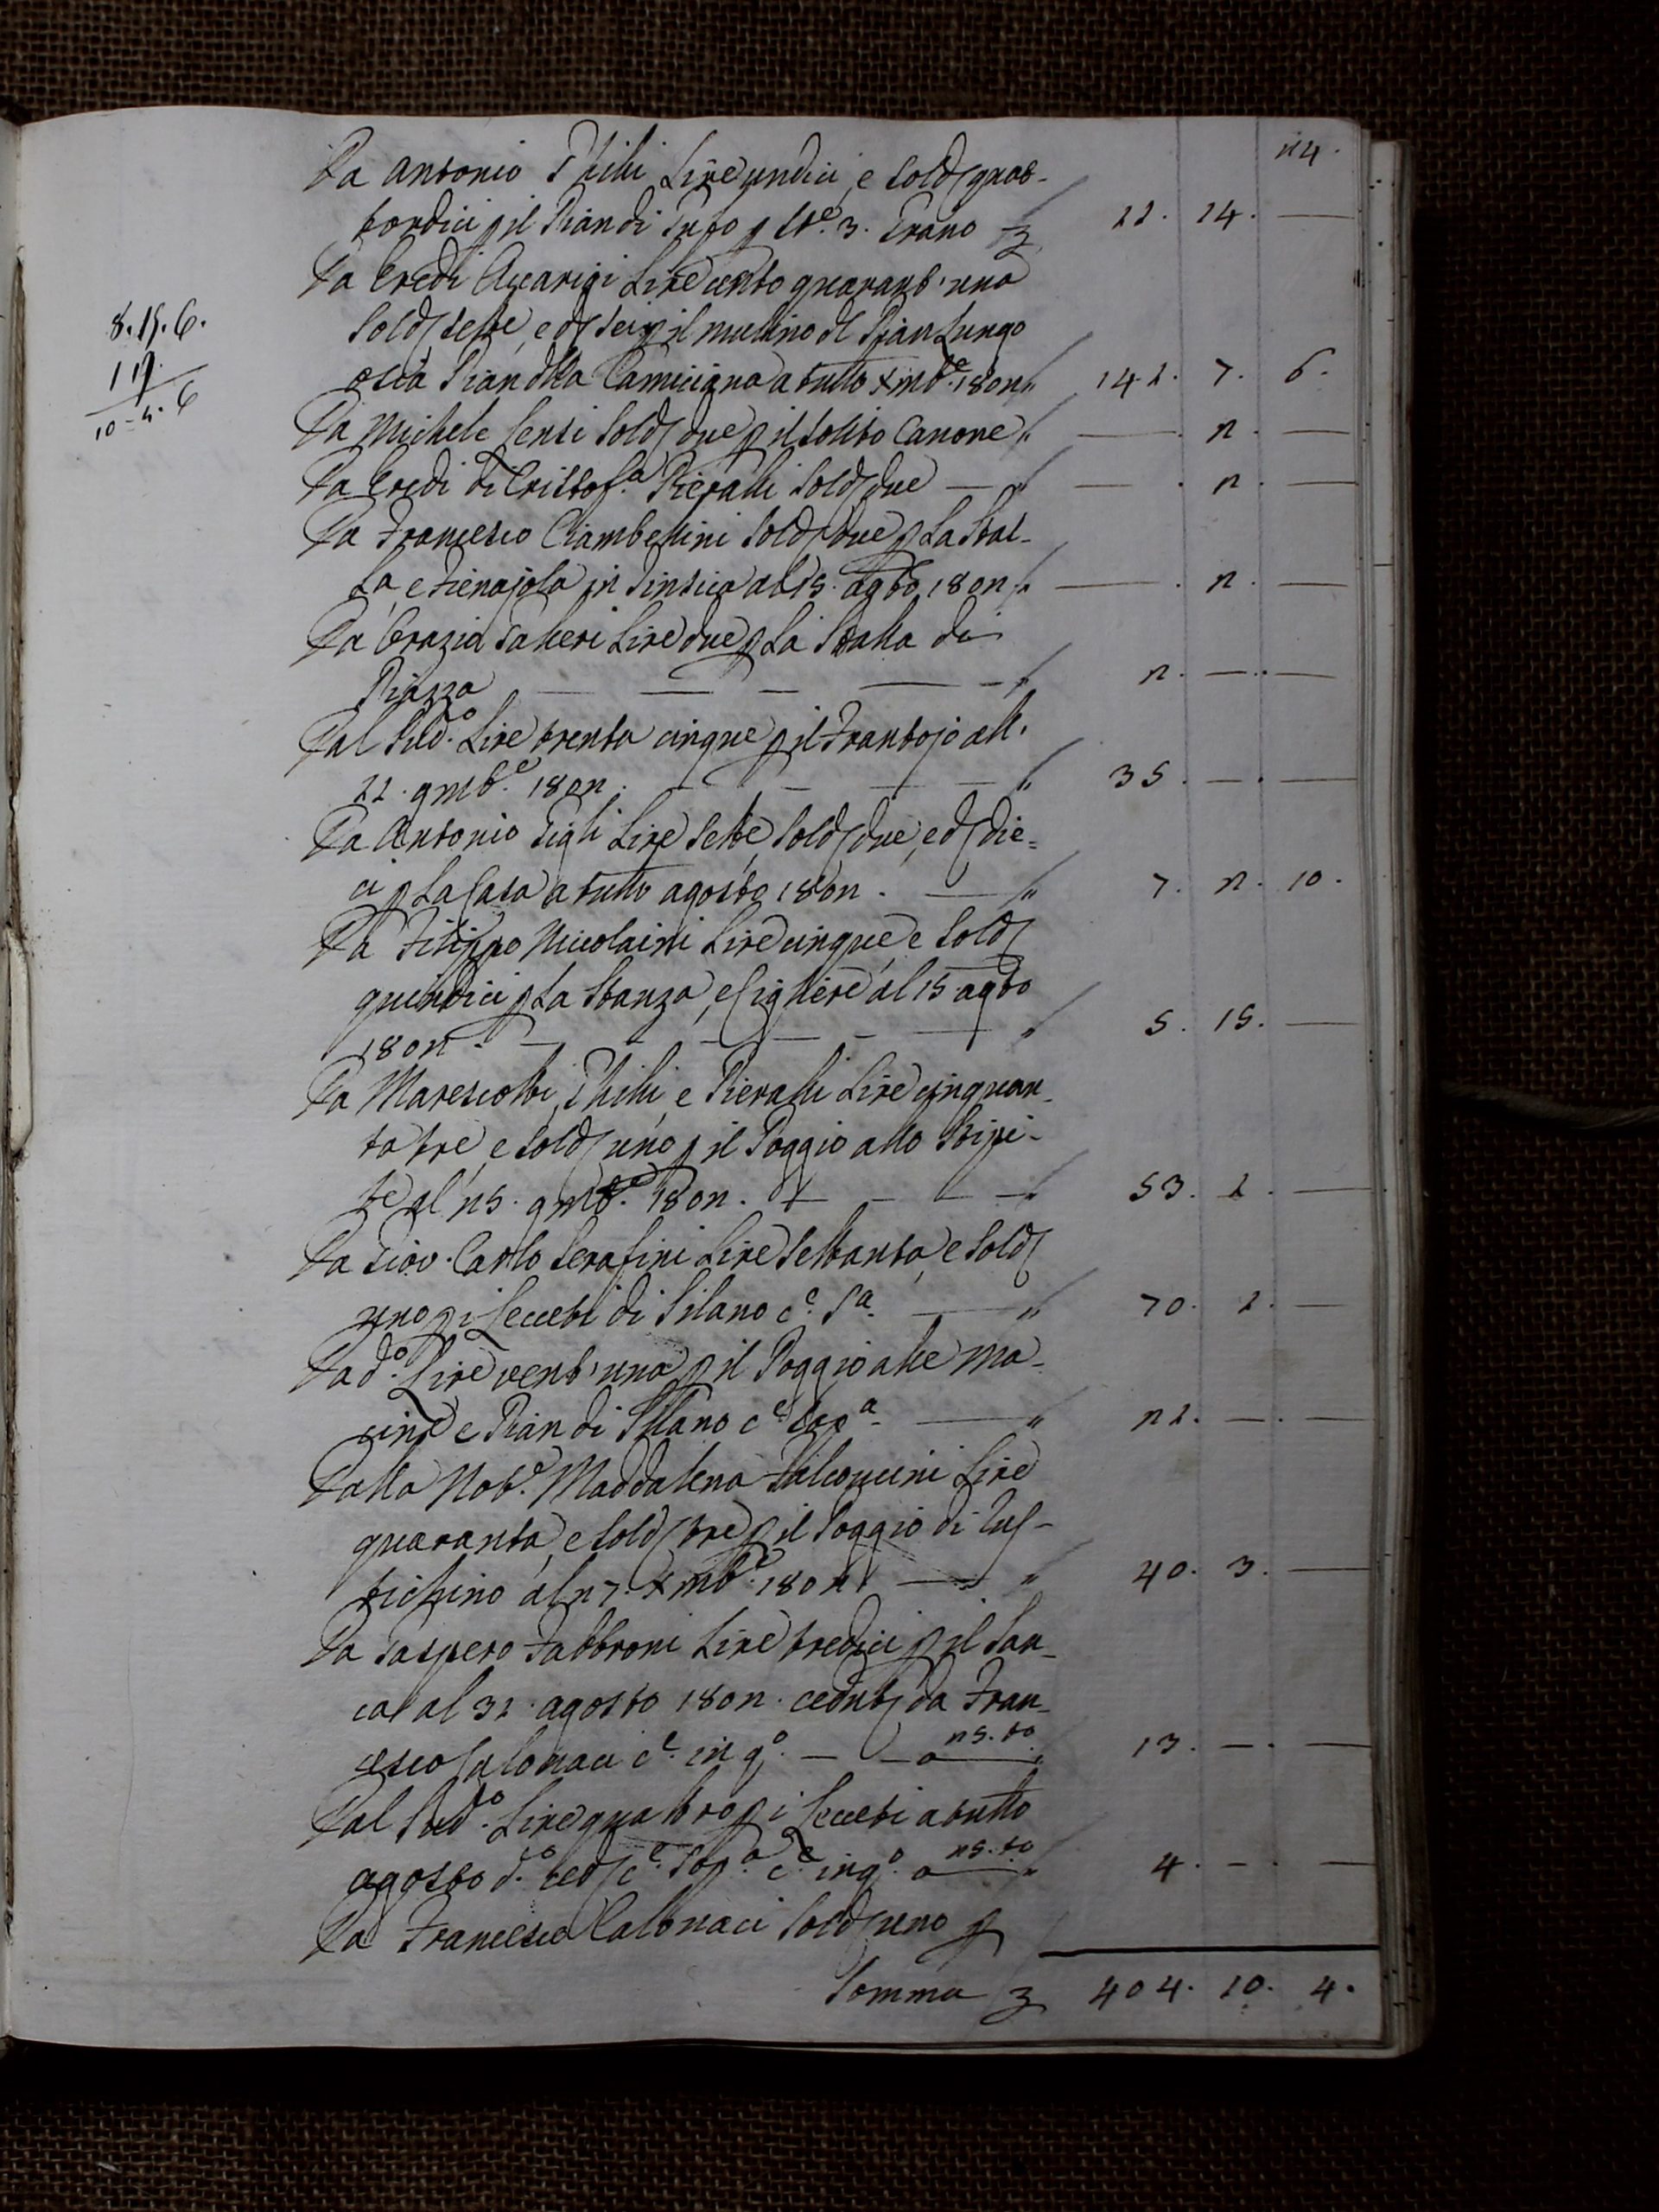 24.
Da Antonio Lire undici, e Sold quat-
tordici p il Pian di Tufo p St.e 3. Grano 11. 14. —
Da Eredi Accarigi Lire cento quarant'una
Sold sette, e d sei p il mulino del Pian Lungo
8. 15. 6.
1 19.
10 - 4. 6
osia Pian della a tutto Xmb.e 1802 „ 141. 7. 6.
Da Michele Censi Sold due p il solito Canone „ — . 2. —
Da Eredi di Cristof.a Pieralli Sold due — „ — . 2. —
Da Francesco Ciambellini Sold due p La Stal-
La, e Fienajola in al 15. agto 1802 „ — . 2. —
Da Orazio Lire due p La Stalla di
Piazza — — — — „ 2. — . —
Dal Sud.o Lire trenta cinque p il Frantojo all'
11. 9mb.e 1802. — — — — „ 35. — . —
Da Antonio Gigli Lire Sette, Sold due, e d die=
ci p La Casa a tutto agosto 1802. — „ 7. 2. 10.
Da Filippo Nicolaini Lire cinque, e Sold
quindici p La Stanza, e al 15 agto
1802. — — — — — „ 5. 15. —
Da Marescotti, e Pieralli Lire cinquan-
ta tre, e Sold uno p il Poggio allo Stipi-
te al 25. 9mb.e 1802. — — — — „ 53. 1. —
Da Giov. Carlo Serafini Lire Settanta, e Sold
uno p i Lecceti di Silano c.e S.a — „ 70. 1. —
Da d.o Lire vent'una p il Poggio alle Ma-
cine e Pian di Silano c.e Sop.a — „ 21. — . —
Dalla Nob.e Maddalena Falconcini Lire
quaranta, e Sold tre p il Poggio di Tuf-
fichino al 27. Xmb.e 1802. — „ 40. 3. —
Da Gaspero Fabbroni Lire tredici p il
al 31. agosto 1802. da Fran-
cesco Calonaci c.e in q.o — — a 25. to „ 13. — . —
Dal Sud.o Lire quattro p i Lecceti a tutto
agosto d.o ced c.e Sop.a c.e in q.o a 25. to „ 4. — . —
Da Francesco Calonaci Sold uno p
Somma 404. 10. 4.